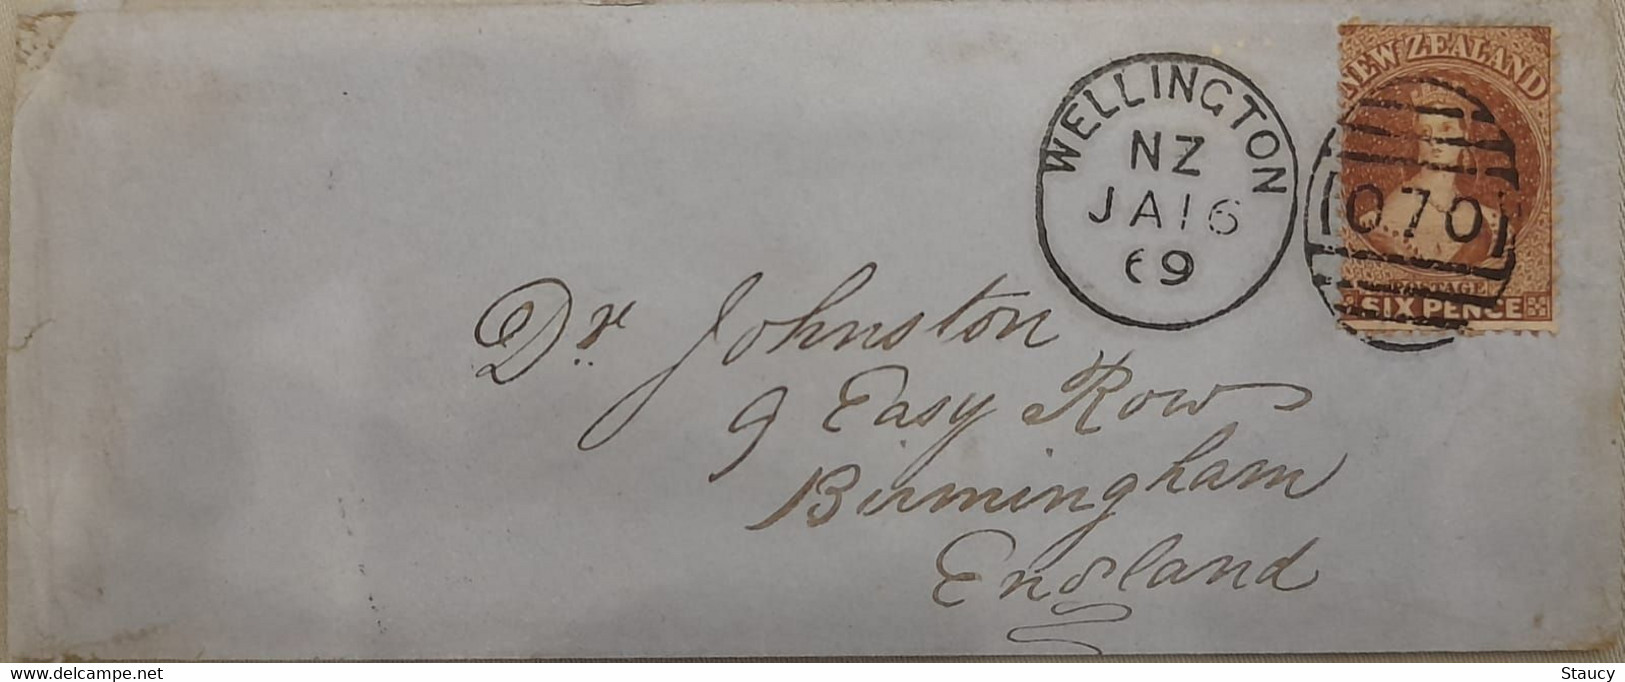 NEW ZEALAND
WELLINGTON
NZ
JA 16
69
070
POSTAGE
SIX PENCE
Dr Johnston
9 Easy Row
Birmingham
England
www.delcampe.net
Staucy